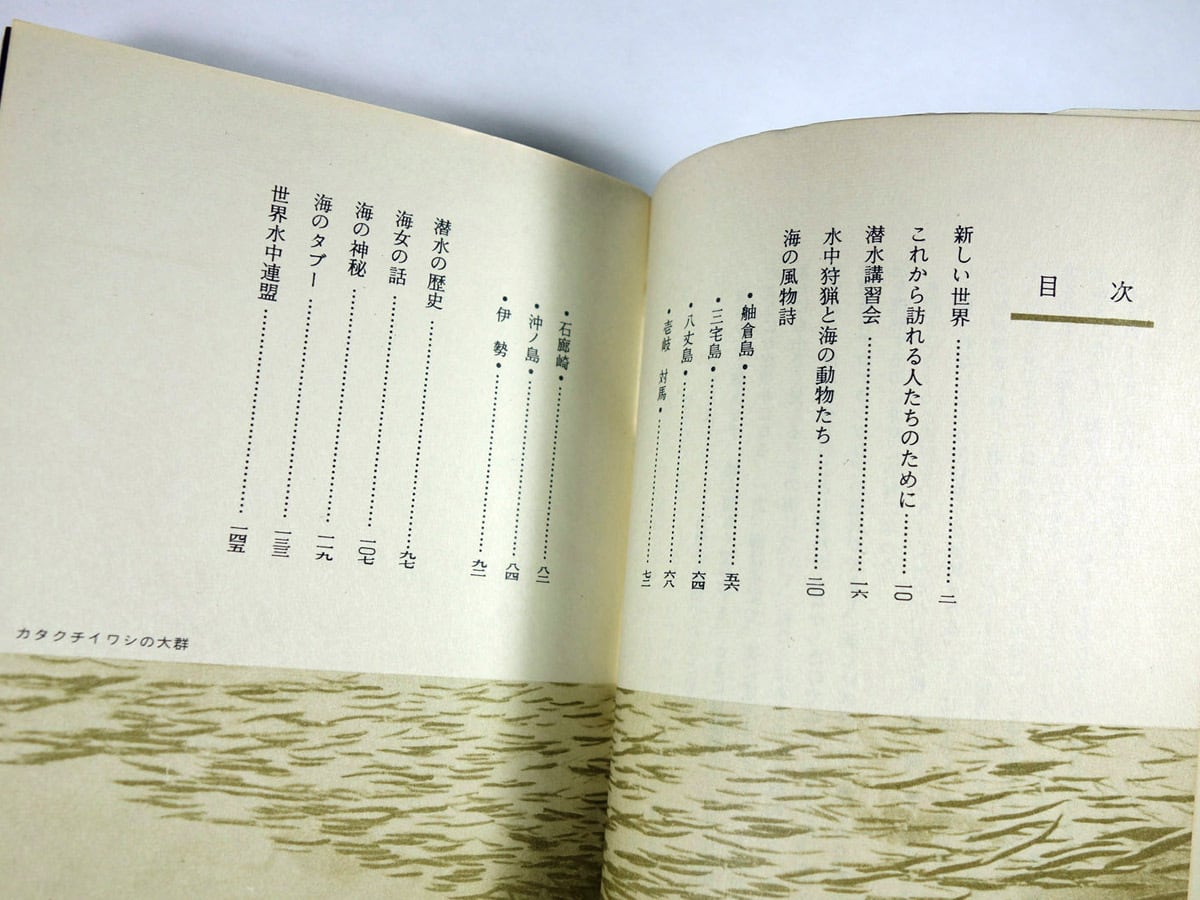 目 次
新しい世界……………………二
これから訪れる人たちのために……一〇
潜水講習会……………………一六
水中狩猟と海の動物たち…………二〇
海の風物詩
・舳倉島・……………………五六
・三宅島・……………………六四
・八丈島・……………………六八
・壱岐 対馬・…………………七二
・石廊崎・……………………八二
・沖ノ島・……………………八四
・伊 勢・……………………九二
潜水の歴史……………………九七
海女の話……………………一〇七
海の神秘……………………一一九
海のタブー……………………一三三
世界水中連盟……………………一四五
カタクチイワシの大群